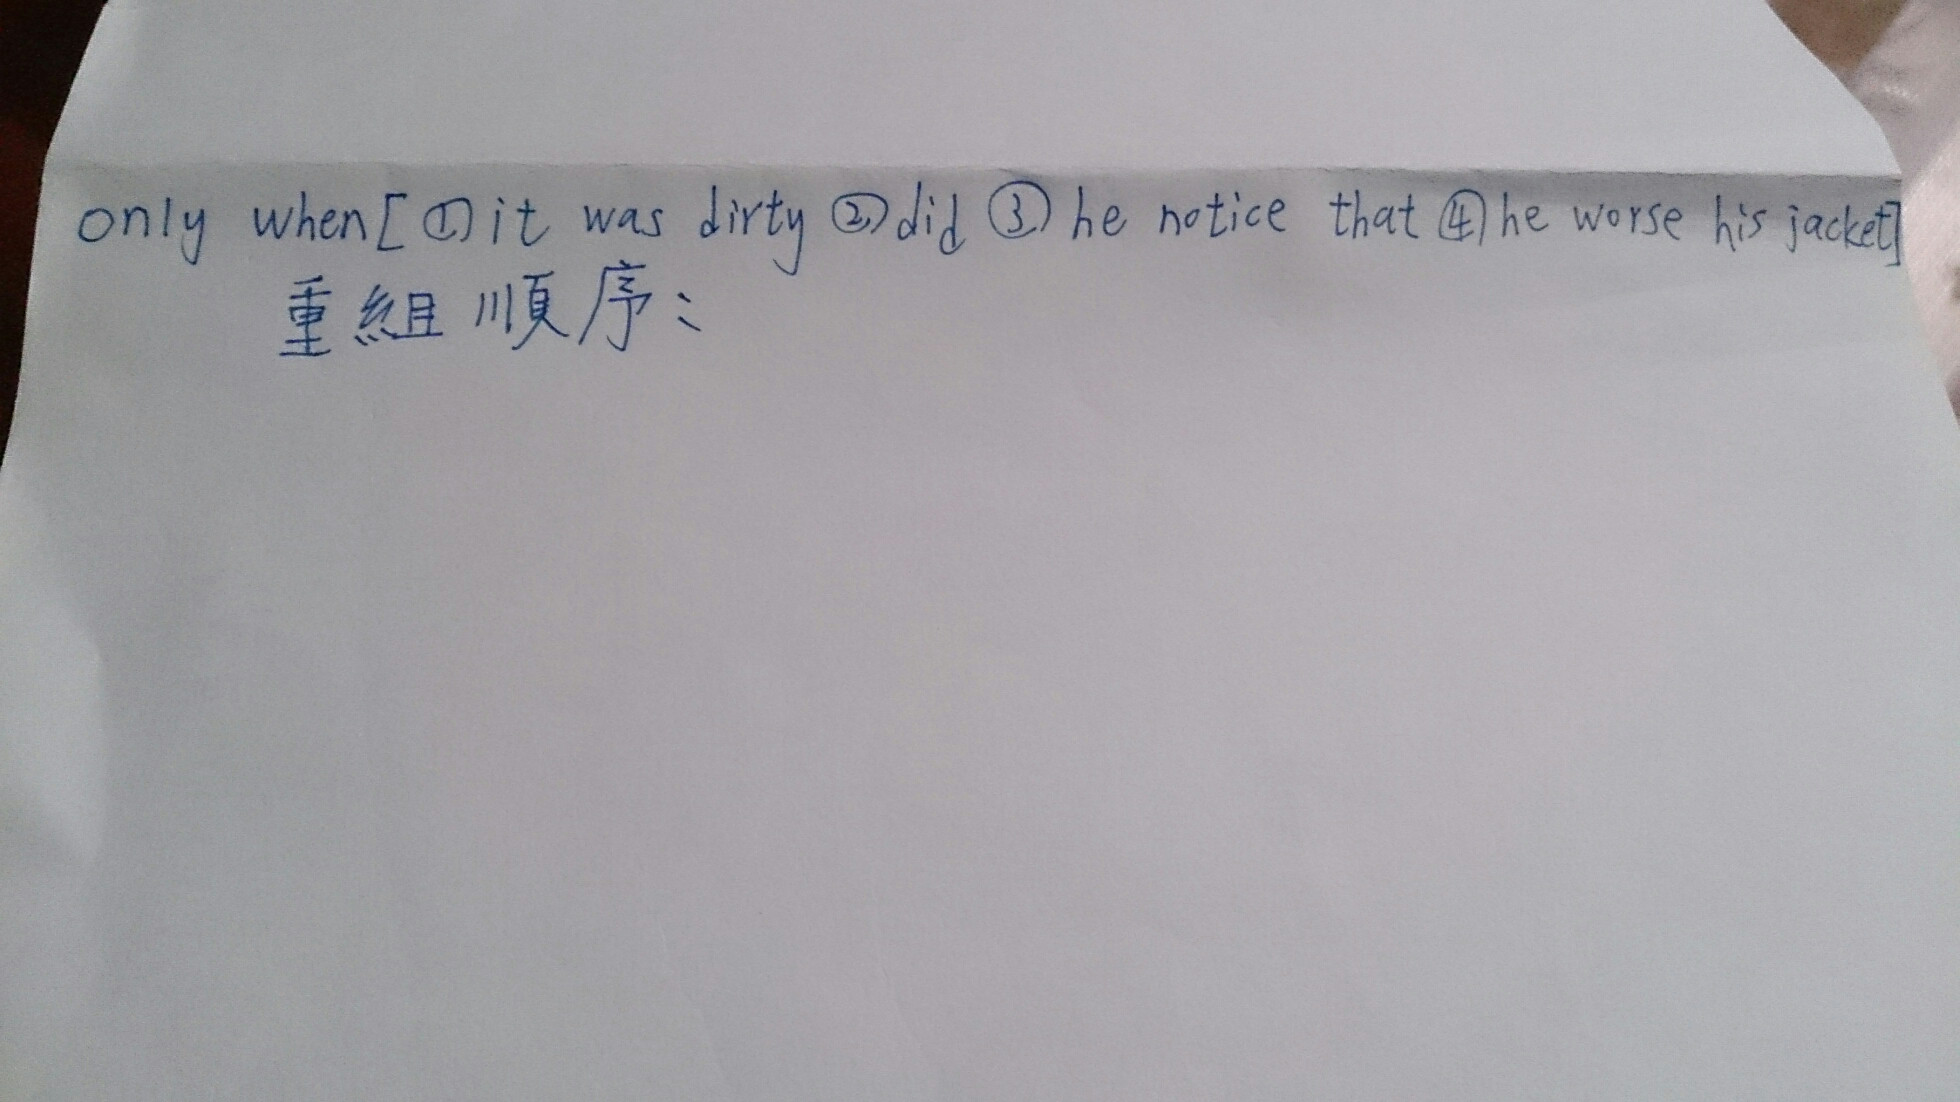 only when[①it was dirty②did③he notice that④he worse his jacket]
重組順序: